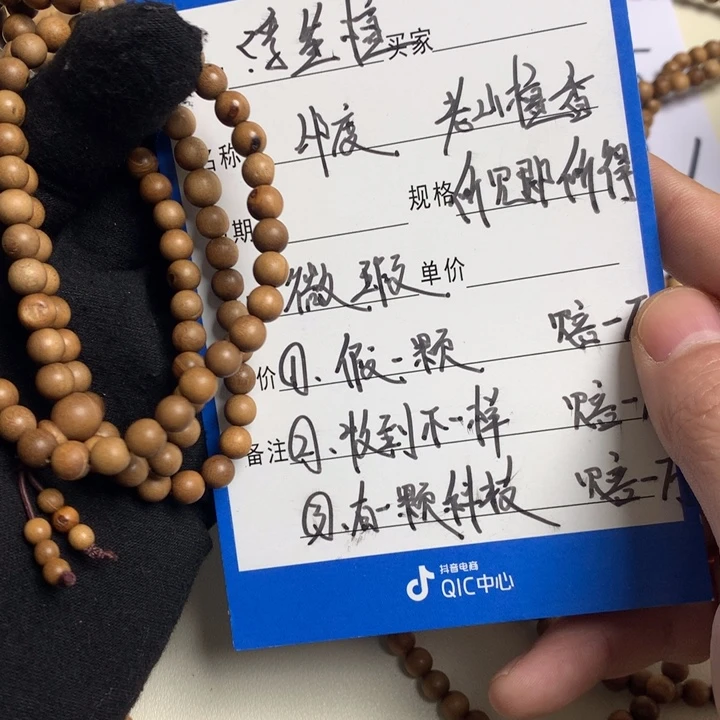 买家
名称 印度 老山檀香
规格 所见即所得
期
微瑕 单价
价 ①、假一颗 赔一万
备注 ②、收到不一样 赔一
③、有一颗科技 赔一万
抖音电商
QIC中心